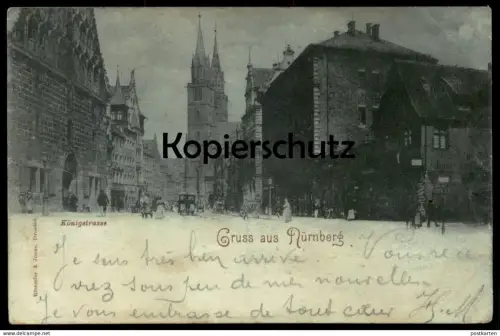 Kopierschutz
Königstrasse
Gruss aus Nürnberg.
Je suis très bien arrivé. Vous rece
vrez sous peu de mes nouvelles.
Je vous embrasse de tout cœur
postkarten